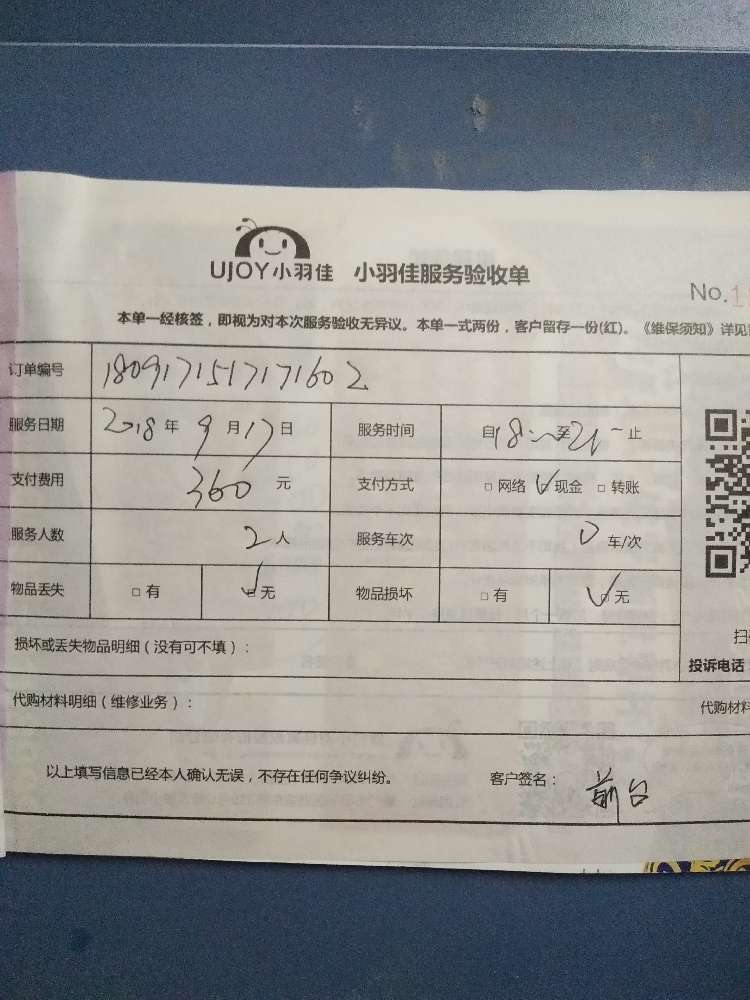 UJOY小羽佳 小羽佳服务验收单
No.1
本单一经核签，即视为对本次服务验收无异议。本单一式两份，客户留存一份(红)。《维保须知》详见
订单编号 1809171517171602
服务日期 2018年9月17日 服务时间 自18:~至21:~止
支付费用 360元 支付方式 □网络 ☑现金 □转账
服务人数 2人 服务车次 0车/次
物品丢失 □有 ☑无 物品损坏 □有 ☑无
扫
损坏或丢失物品明细（没有可不填）： 投诉电话
代购材料明细（维修业务）： 代购材料
以上填写信息已经本人确认无误，不存在任何争议纠纷。 客户签名： 前台